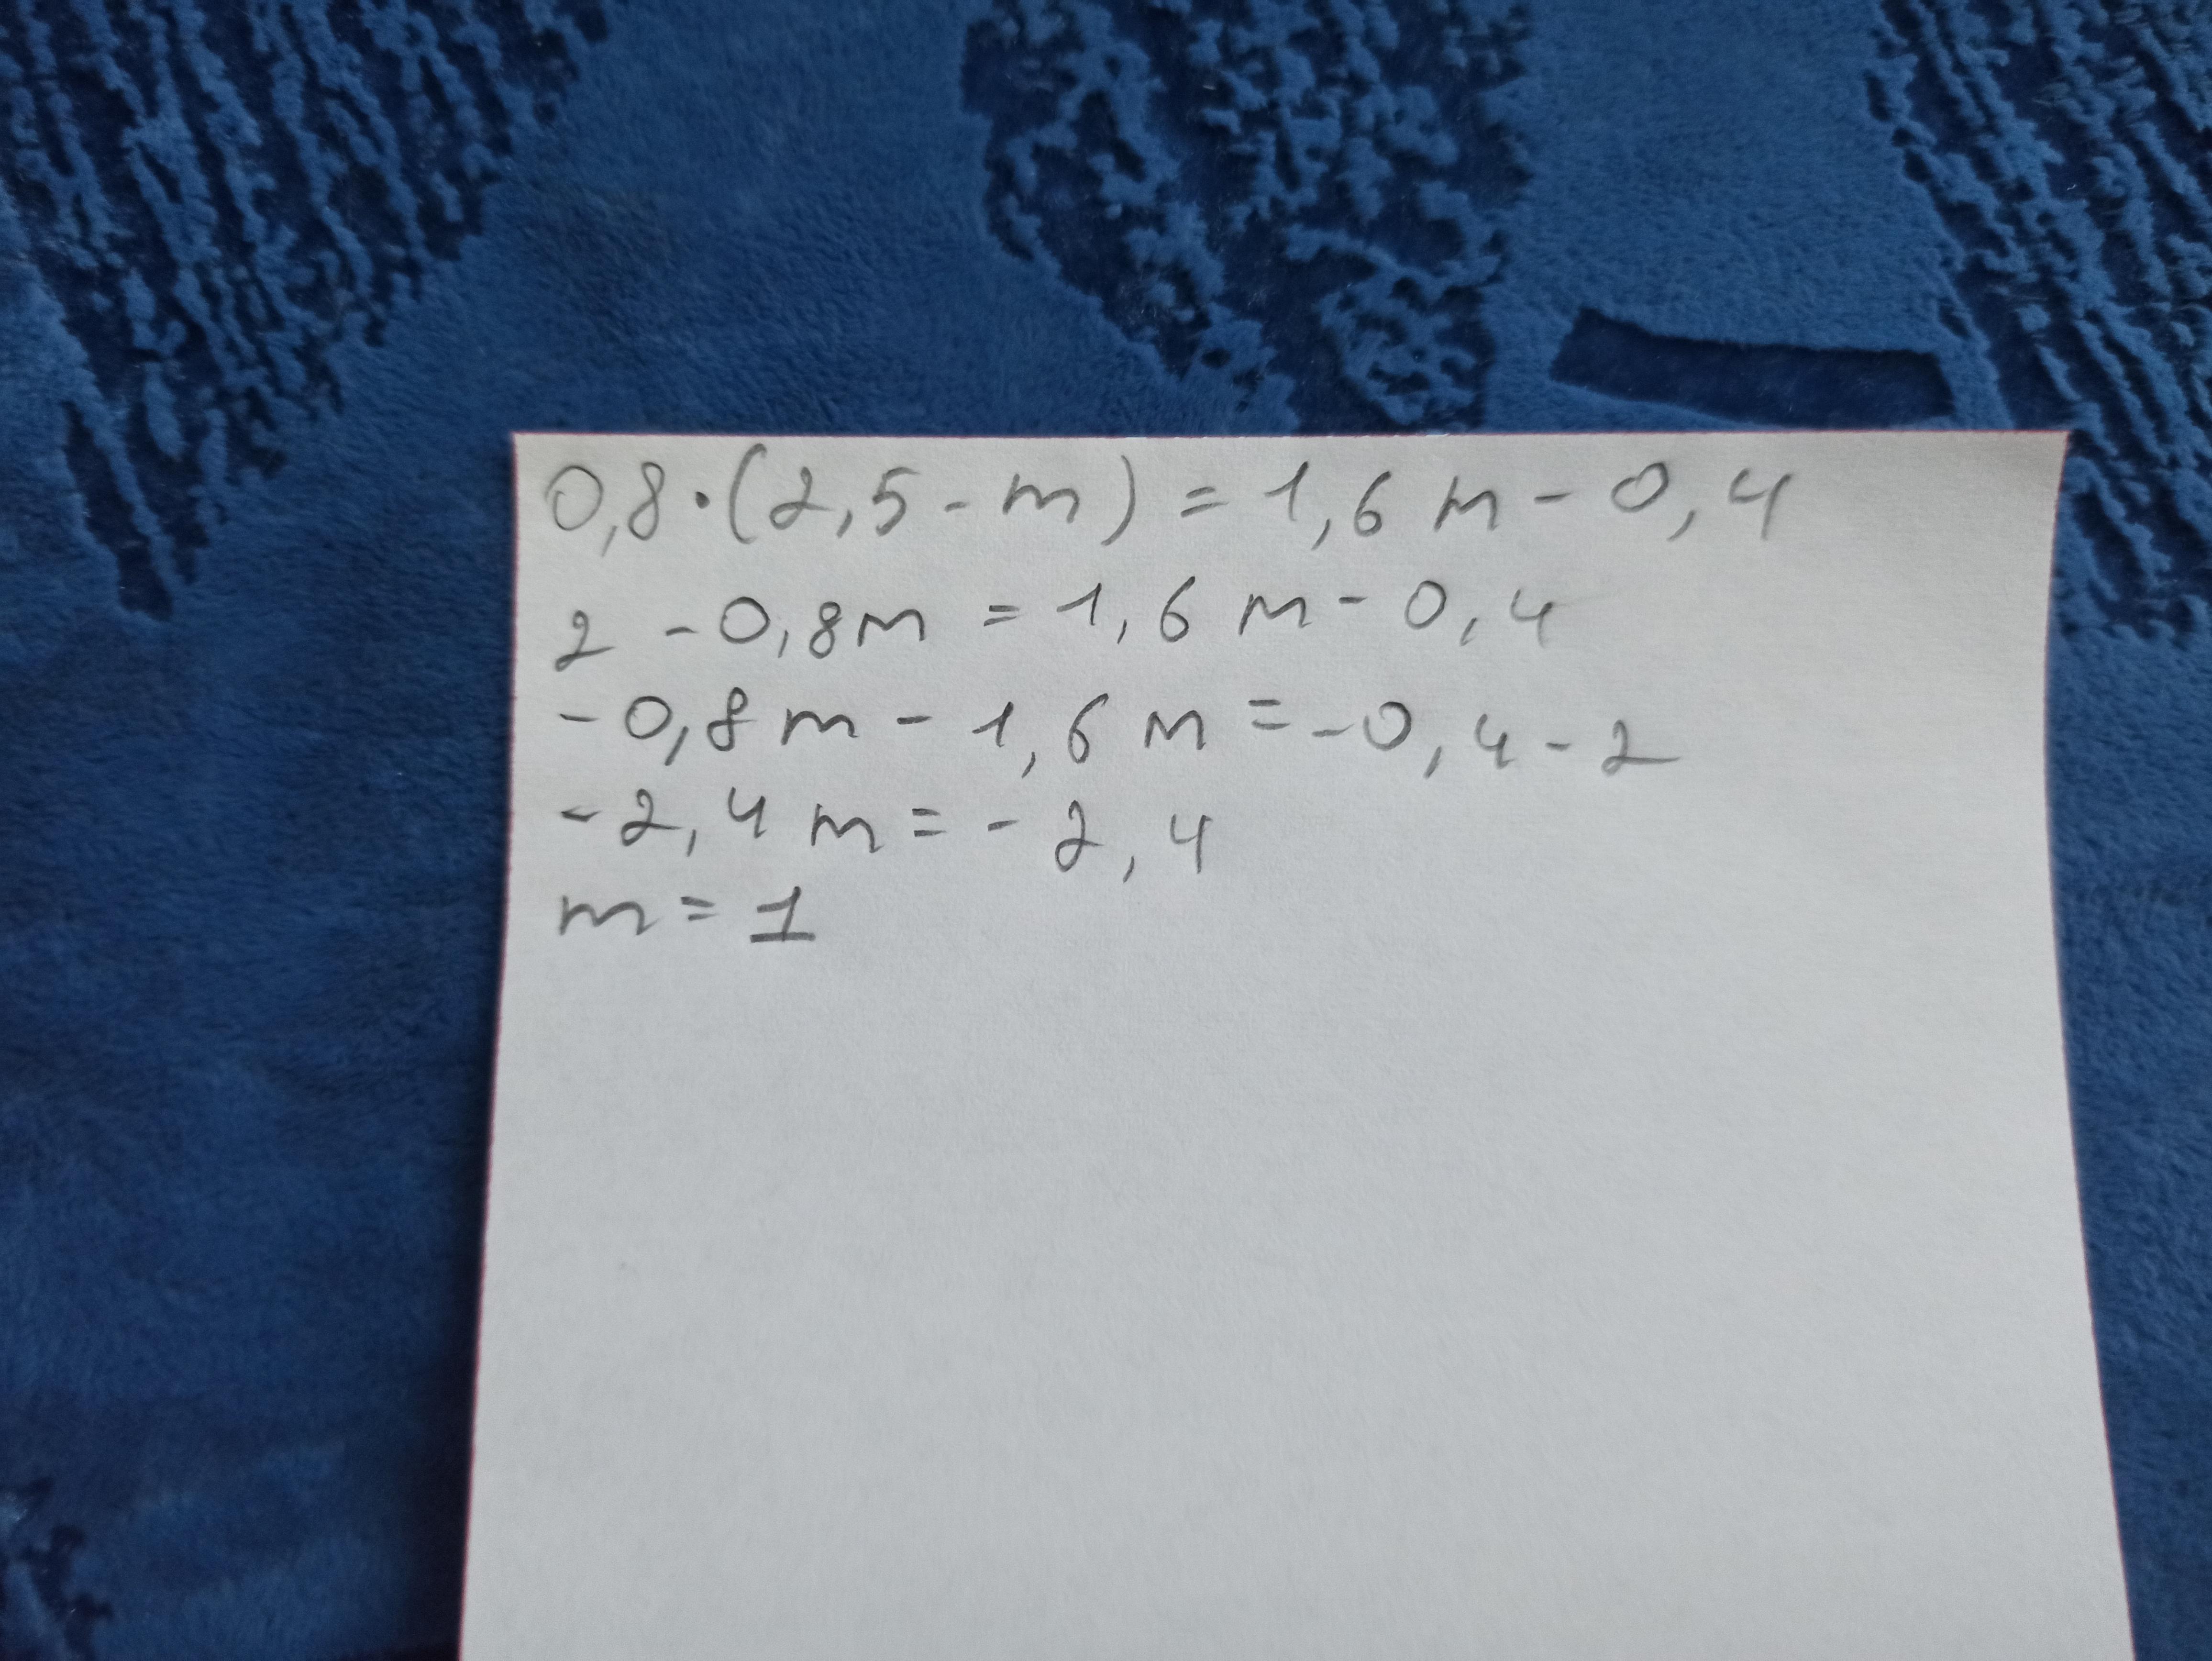 0,8·(2,5-m)=1,6m-0,4
2-0,8m=1,6m-0,4
-0,8m-1,6m=-0,4-2
-2,4m=-2,4
m=1